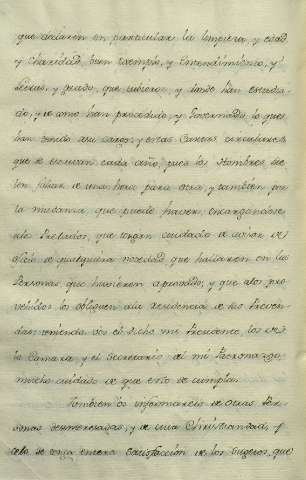 que declaren en particular la limpieza, y edad,
y charidad, buen exemplo, y entendimiento, y
letras, y grado, que tubieren, y donde han estudia-
do, y como han procedido, y Governado, lo que
han tenido asu cargo; y estas Cartas circulares
que se escrivan cada año, pues los Hombres sue-
len faltar de una hora para otra, y tambien por
la mudanza que puede haver, encargandose
alos Prelados, que tengan cuidado de avisar de
oficio de qualquiera novedad que hallaren en las
Personas que huvieren aprovado, y que alos pro-
veidos los obliguen ala residencia de sus Preven-
das, teniendo vos el dicho mi Presidente, los de
la Camara y el Secretario de mi Patronazgo
mucho cuidado de que esto se cumpla.
Tambien os informareis de otras Per-
sonas desinteresadas, y de cuia Christiandad, y
celo se tenga entera satisfaccion de los sugetos, que